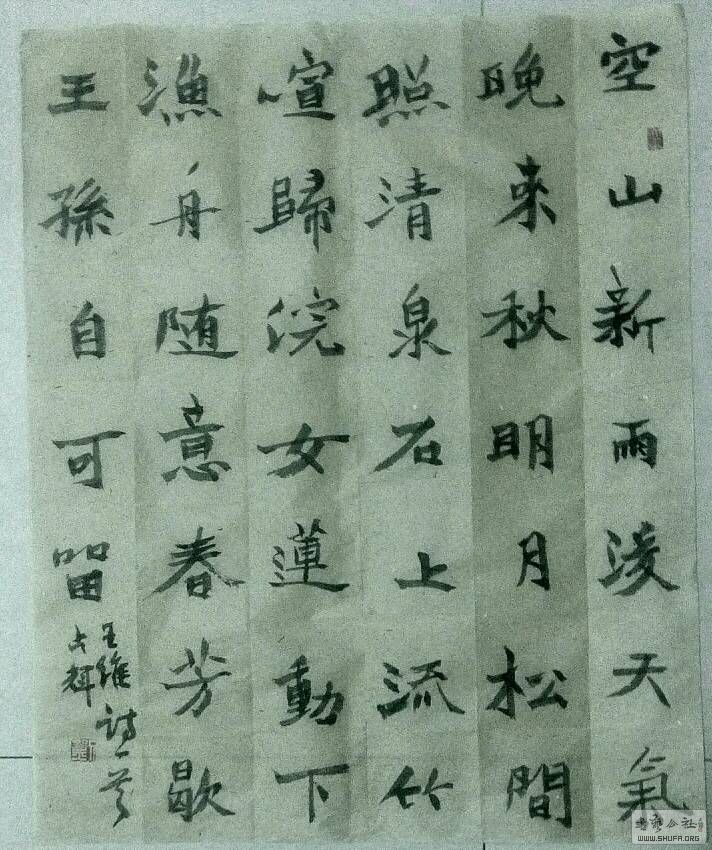 空山新雨後天氣
晚來秋明月松間
照清泉石上流竹
喧歸浣女蓮動下
漁舟随意春芳歇
王孫自可留
王維詩一首
書藝公社
WWW.SHUFA.ORG